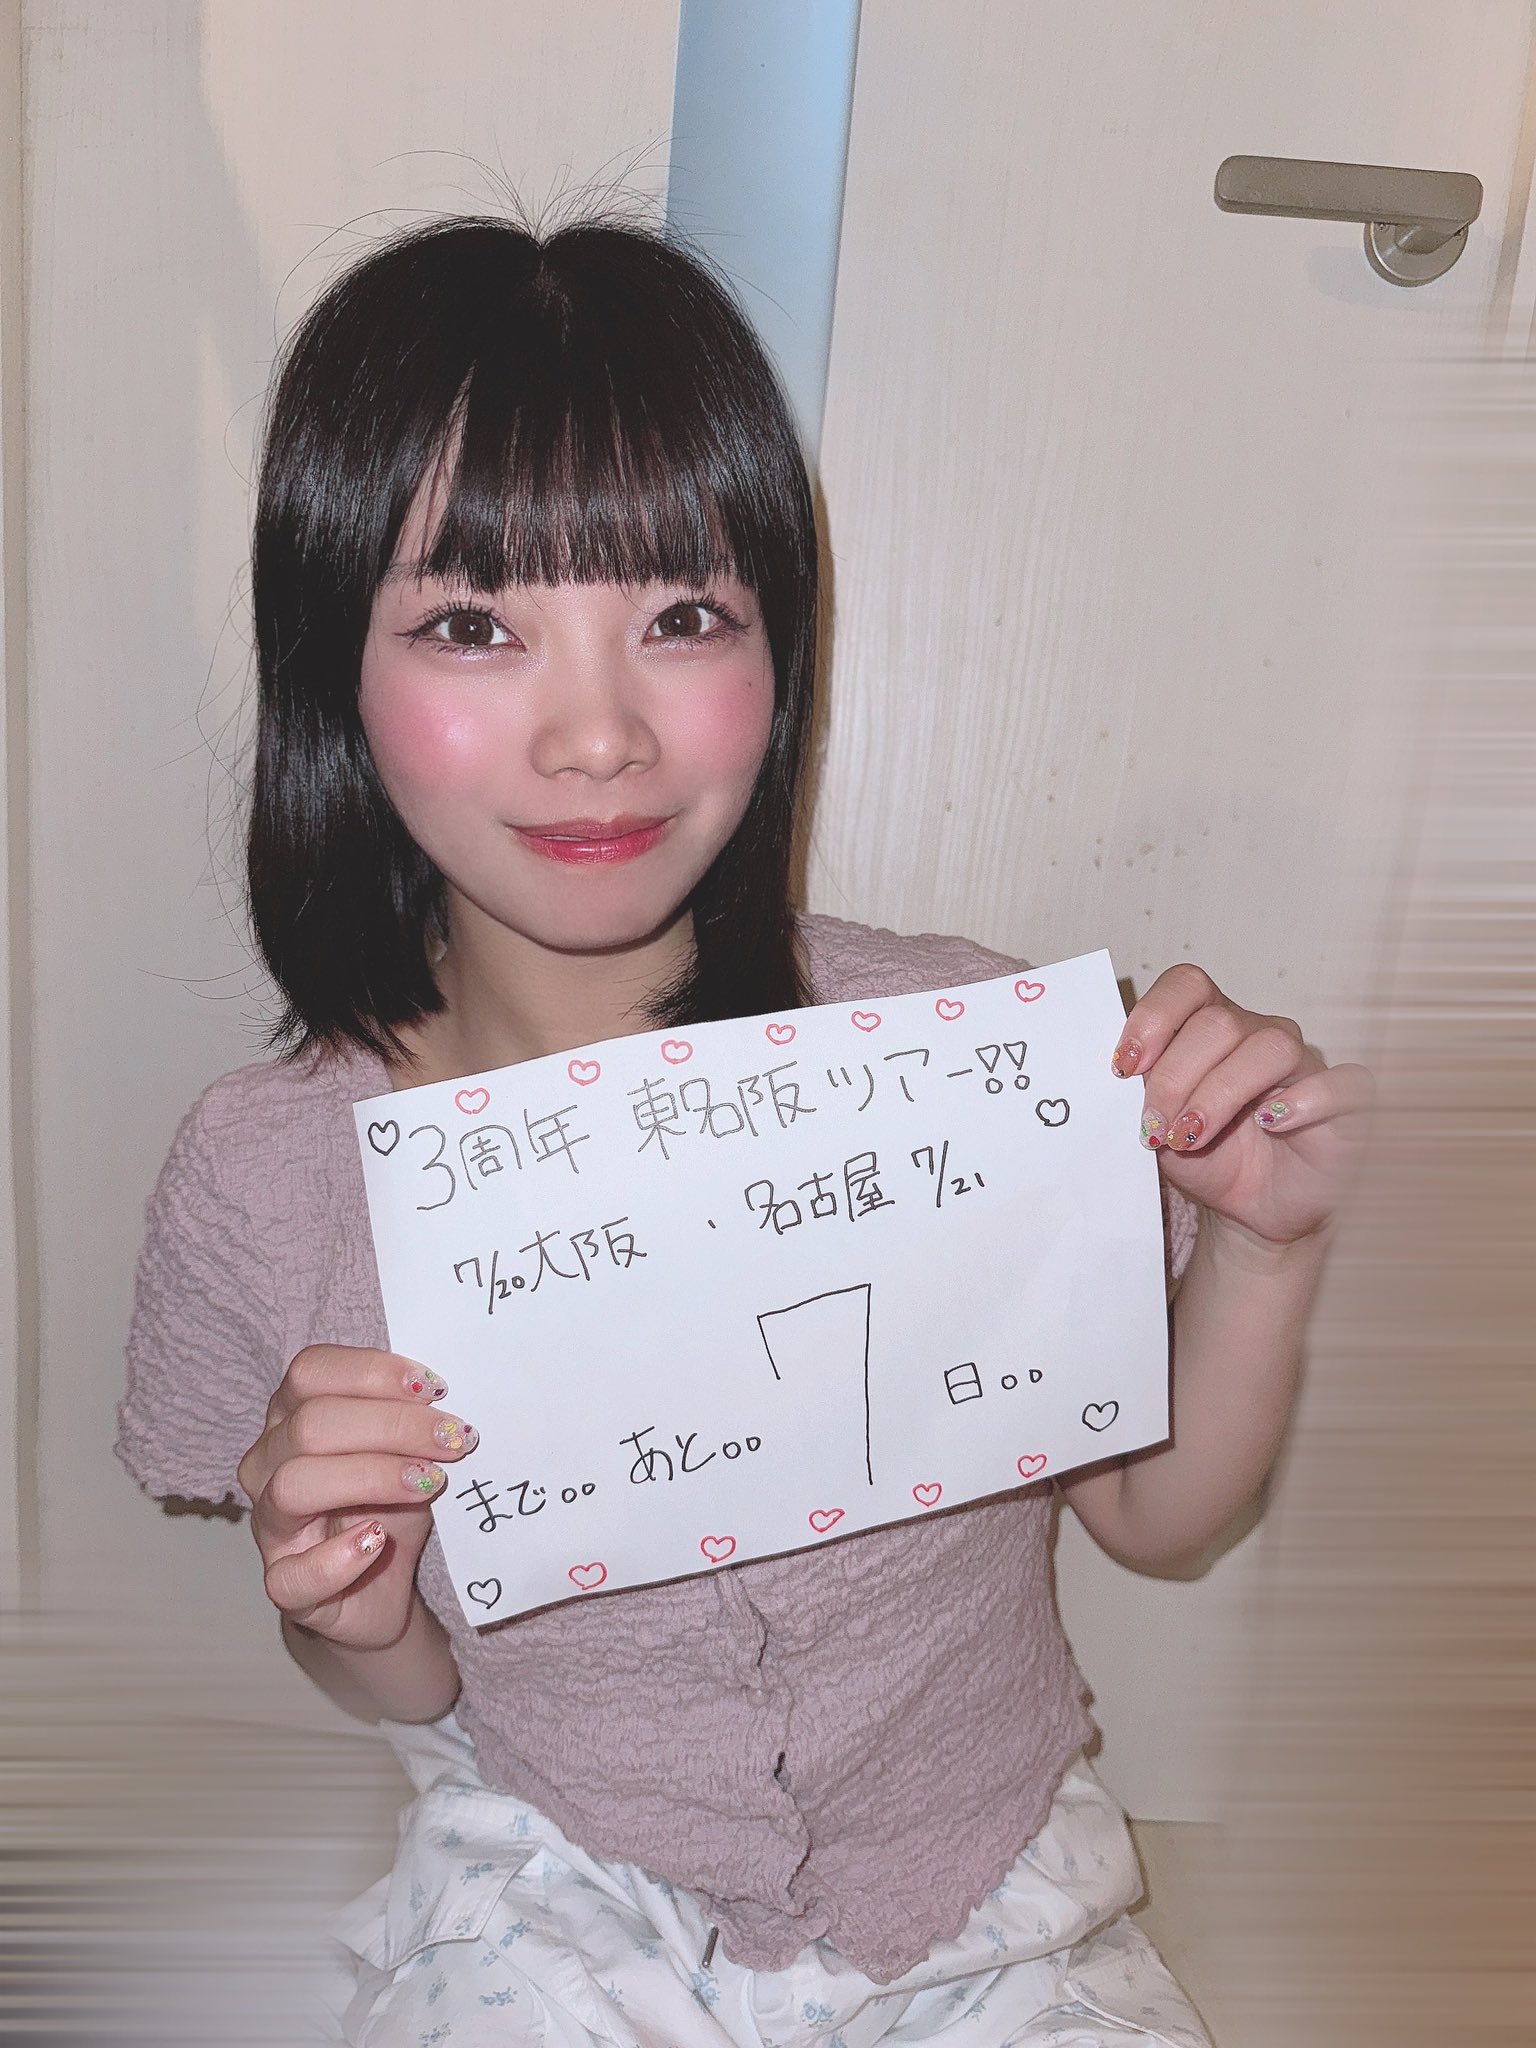 3周年 東名阪ツアー!!
7/20大阪、名古屋 7/21
まで。。あと。。7日。。